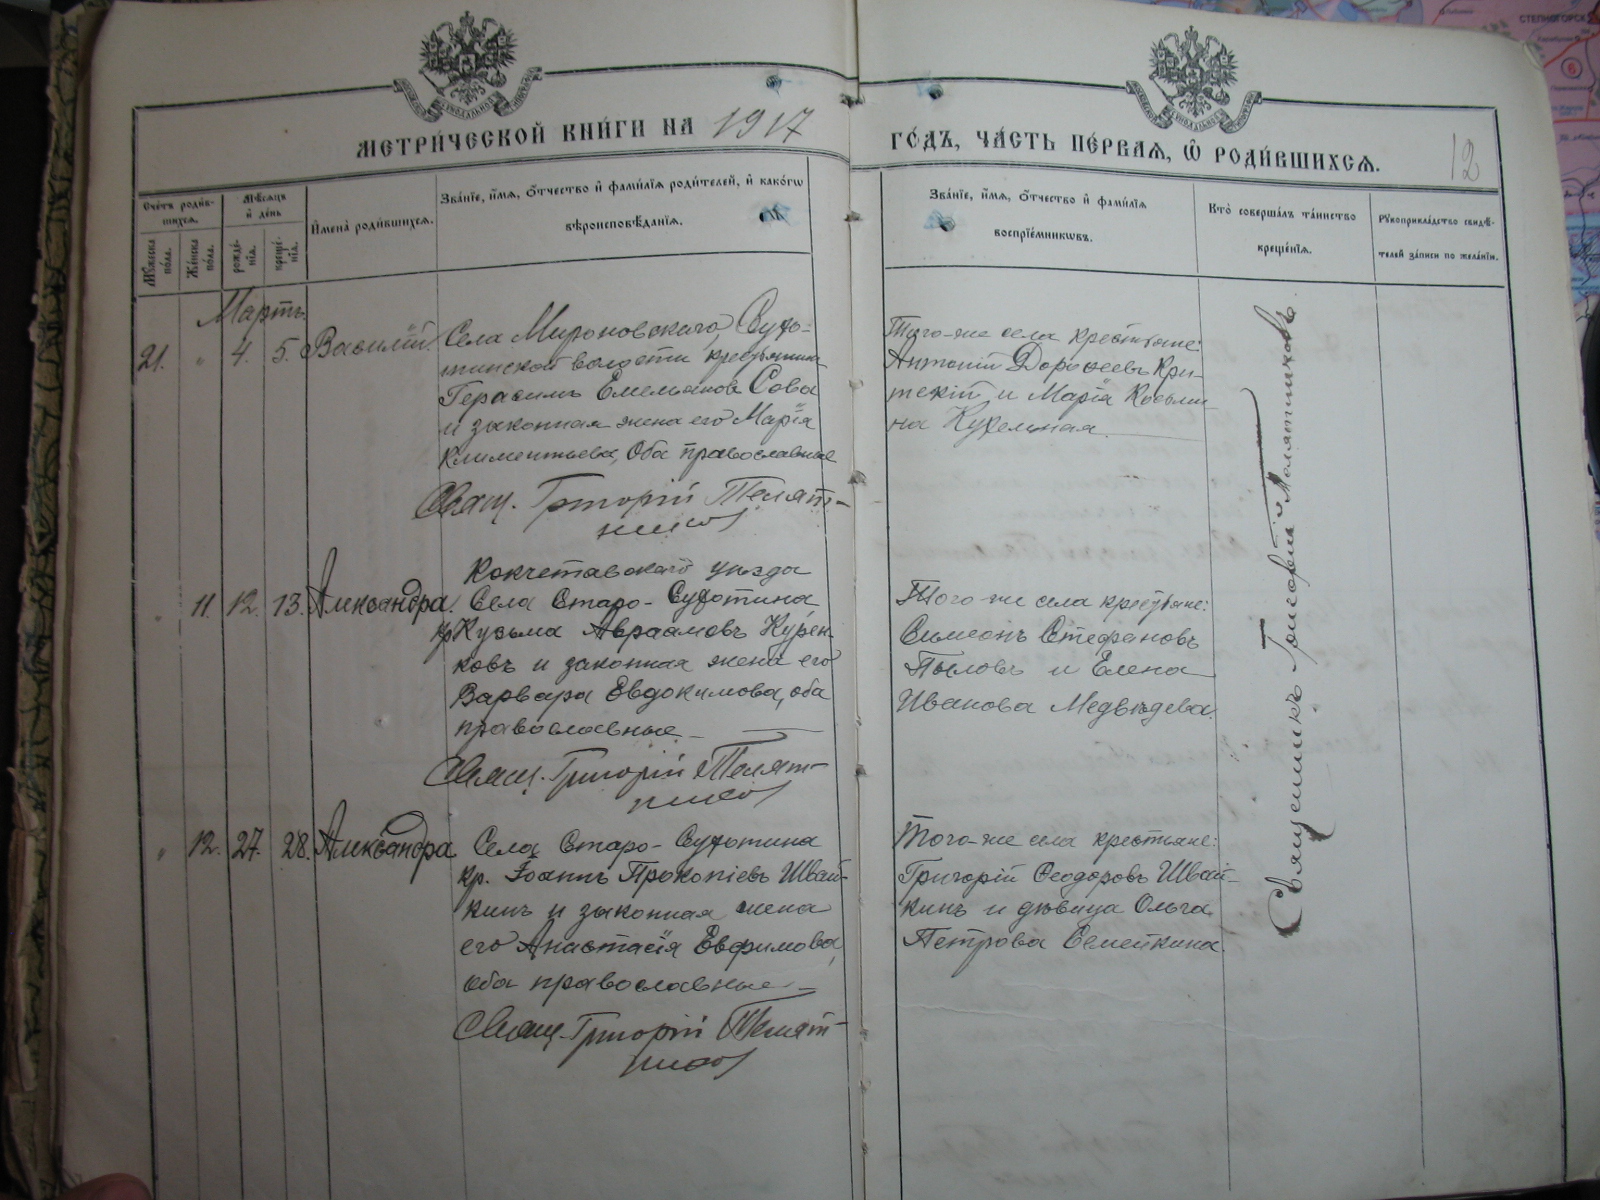 МЕТРИ́ЧЕСКОЙ КНИ́ГИ НА 1917
ГО́ДЪ, ЧА́СТЬ ПЕ́РВАЯ, Ѡ РОДИ́ВШИХСЯ.
12
Сче́тъ роди́в-
шихся.
Му́жеска
по́ла.
Же́нска
по́ла.
Мѣ́сяцъ
и́ де́нь
рожде́-
нїя.
креще́-
нїя.
И҆мена̀ роди́вшихся.
Зва́нїе, и҆́мя, ѻ҆́тчество и҆ фами́лїя роди́телей, и҆ како́гѡ
вѣроисповѣ́данїя.
Зва́нїе, и҆́мя, ѻ҆́тчество и҆ фами́лїя
воспрїе́мникѡвъ.
Кто̀ соверша́лъ та́инство
креще́нїя.
Рꙋкоприкла́дство свидѣ́-
телей за́писи по жела́нїю.
Мартъ
21. " 4. 5. Василій.
Села Мироновскаго, Сухо-
тинской волости крестьянинъ
Герасимъ Емельяновъ Сова
и законная жена его Марія
Климентьева, Оба православные
Свящ. Григорій Телят-
никовъ
Того-же села крестьяне:
Антоній Дороѳеевъ Кри-
тскій и Марія Косьми-
на Кухельная.
" 11. 12. 13. Александра.
Кокчетавскаго уѣзда
Села Старо-Сухотина,
кр Кузьма Авраамовъ Курен-
ковъ и законная жена его
Варвара Евдокимова, оба
православные
Свящ. Григорій Телят-
никовъ
Того-же села крестьяне:
Симеонъ Стефановъ
Пыловъ и Елена
Иванова Медвѣдева.
" 12. 27. 28. Александра
Села Старо-Сухотина
кр. Іоаннъ Прокопіевъ Швай-
кинъ и законная жена
его Анастасія Евфимова,
оба православные
Свящ. Григорій Телят-
никовъ
Того-же села крестьяне:
Григорій Ѳеодоровъ Швай-
кинъ и дѣвица Ольга
Петрова Семейкина.
Священникъ Григорій Телятниковъ
СТЕПНОГОРСК
6